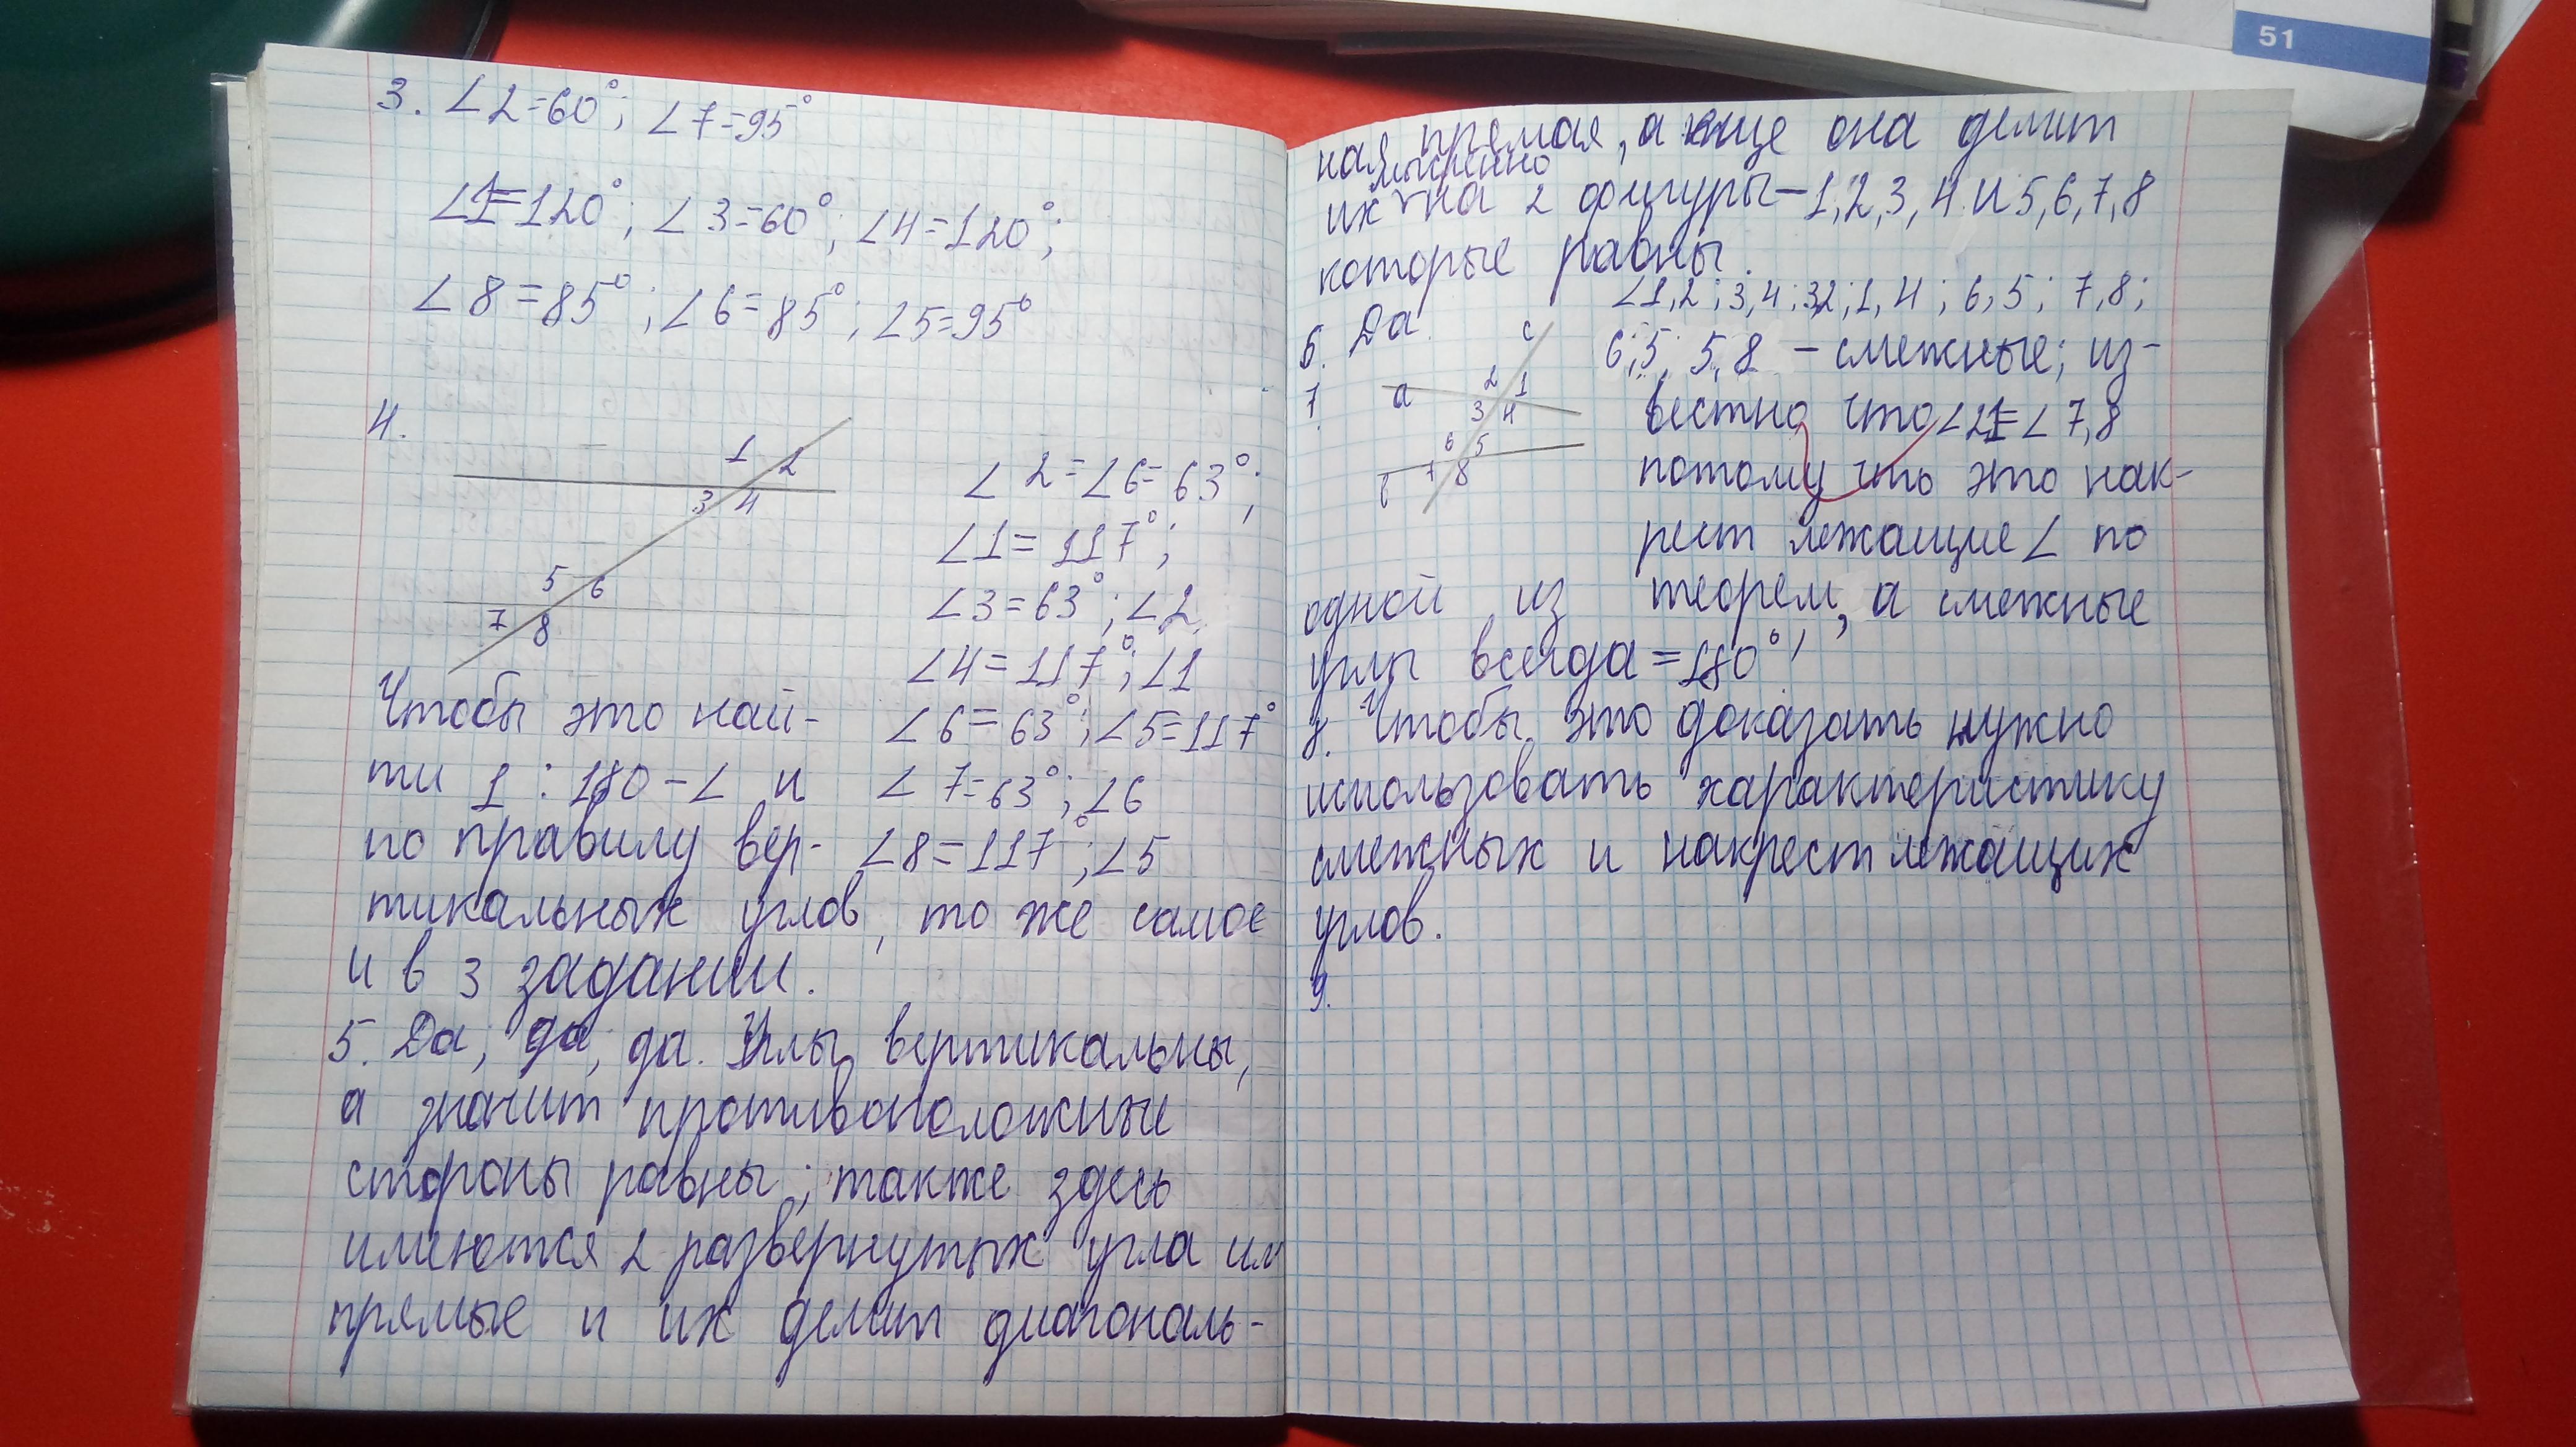 3. ∠2=60°; ∠7=95°
∠1=120°; ∠3=60°; ∠4=120°;
∠8=85°; ∠6=85°; ∠5=95°
4.
1 2
3 4
5 6
7 8
∠2=∠6=63°;
∠1=117°;
∠3=63°; ∠2
∠4=117°; ∠1
Чтобы это най-
∠6=63°; ∠5=117°
ти 1 : 180-∠ и
∠7=63°; ∠6
по правилу вер-
∠8=117°; ∠5
тикальных углов, то же самое
и в 3 задании.
5. Да, да, да. Углы вертикальны,
а значит противоположные
стороны равны; также здесь
имеются 2 развернутых угла
прямые и их делит диагональ-
ная прямая, а еще она делит
мысленно
их на 2 фигуры-1,2,3,4 и 5,6,7,8
которые равны.
6. Да.
∠1,2; 3,4; 32; 1,4; 6,5; 7,8;
6;5; 5,8 - смежные; из-
7.
a
c
2 1
3 4
6 5
7 8
b
вестно что ∠21=∠7,8
потому что это нак-
рест лежащие ∠ по
одной из теорем, а смежные
углы всегда=180°
8. Чтобы это доказать нужно
использовать характеристику
смежных и накрест лежащих
углов.
9.
51